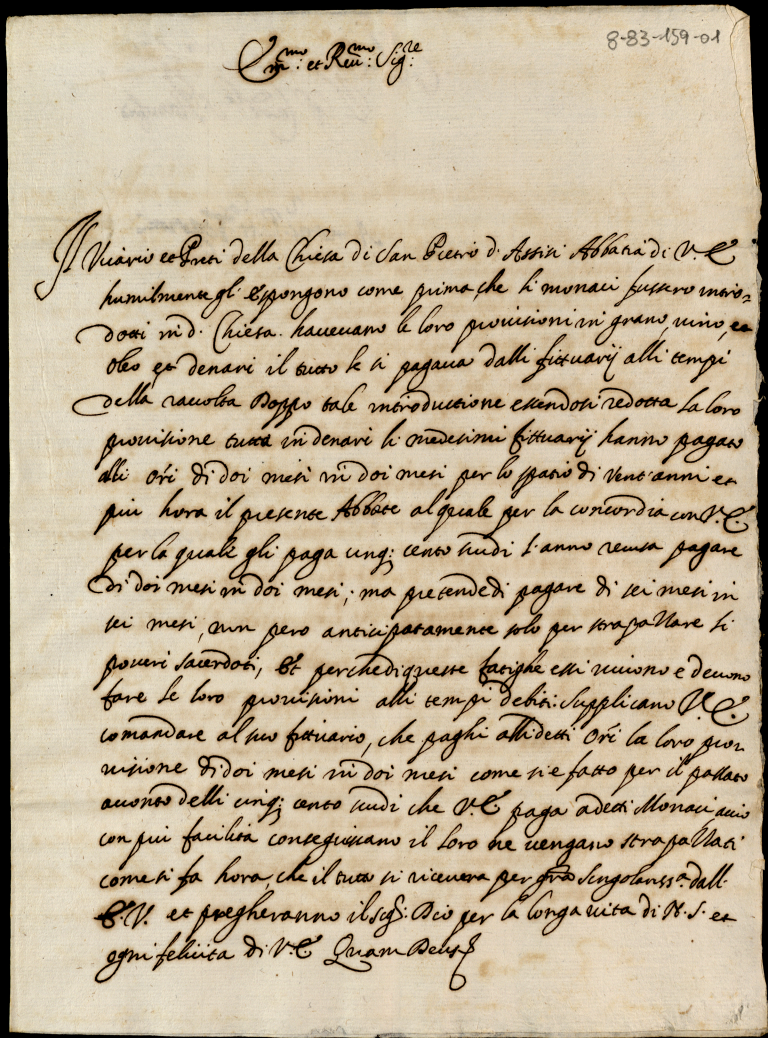 8-83-159-01
Em.mo et Reu.mo Sig.re
Il Vicario et Preti della Chiesa di San Pietro d'Assisi Abbatia di V. E.
humilmente gl'espongono come prima, che li monaci fussero intro-
dotti in d. Chiesa. haueuano le loro prouisioni in grano, uino, et
oleo, et denari il tutto se si pagaua dalli fittuarij alli tempi
della racolta Doppo tale introduttione essendosi redotta la loro
prouisione tutta in denari li medesimi fittuarij hanno pagato
alli Ori di doi mesi in doi mesi per lo spatio di vent'anni et
piu hora il presente Abbate al quale per la concordia con V. E.
per la quale gli paga cinq; cento scudi l'anno recusa pagare
di doi mesi in doi mesi; ma pretende di pagare di sei mesi in
sei mesi, non pero anticipatamente solo per strapazzare li
poueri sacerdoti, Et perche di queste fatighe essi uiuono e deuono
fare le loro prouisioni alli tempi debiti: Supplicano V. E.
comandare al suo fittuario, che paghi alli detti Ori la loro prou
uisione di doi mesi in doi mesi come si e fatto per il passato
a conto delli cinq; cento scudi che V. E. paga a detti Monaci, accio
con piu facilita conseguiscano il loro ne uengano strapazzati
come si fa hora, che il tutto si riceuera per gra singolariss.a dall'
E. V. et pregheranno il Sig.r Dio per la longa uita di N. S. et
ogni felicita di V. E. Quam Deus